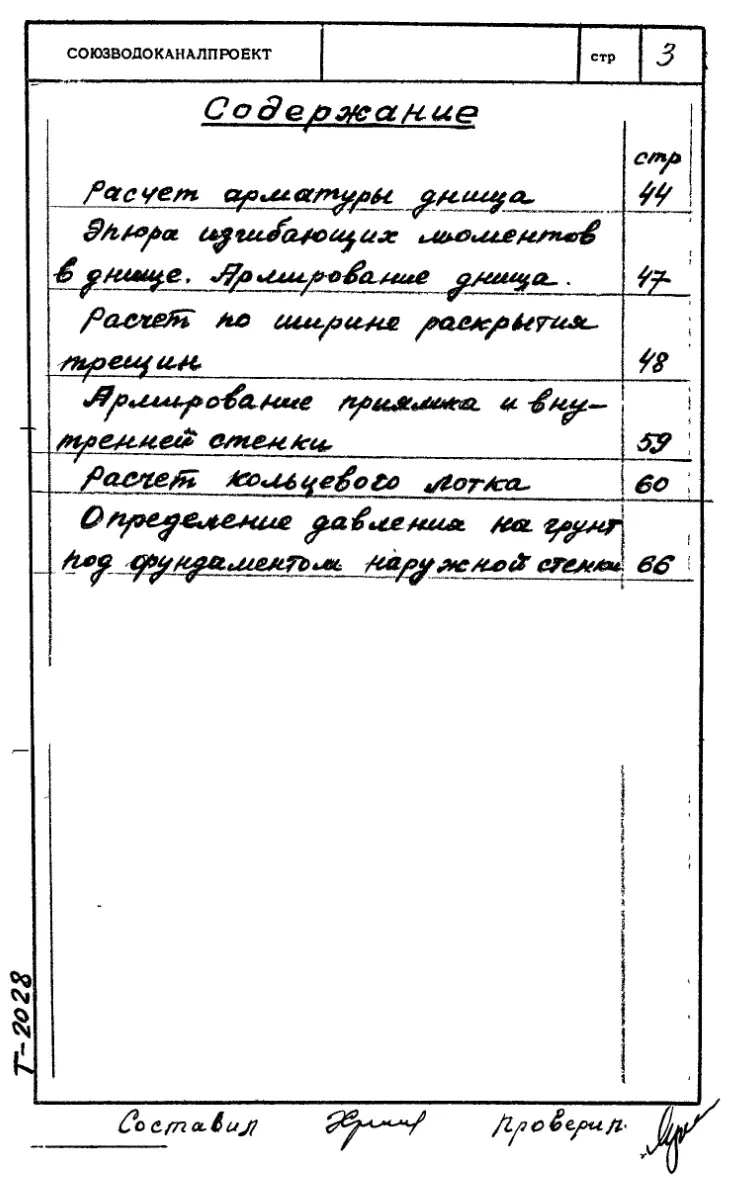 СОЮЗВОДОКАНАЛПРОЕКТ стр 3
Содержание
стр
Расчет арматуры днища 44
Эпюра изгибающих моментов
в днище. Армирование днища. 47
Расчет по ширине раскрытия
трещин 48
Армирование приямка и вну-
тренней стенки 59
Расчет кольцевого лотка 60
Определение давления на грунт
под фундаментом наружной стенки 66
Т-2028
Составил Проверил